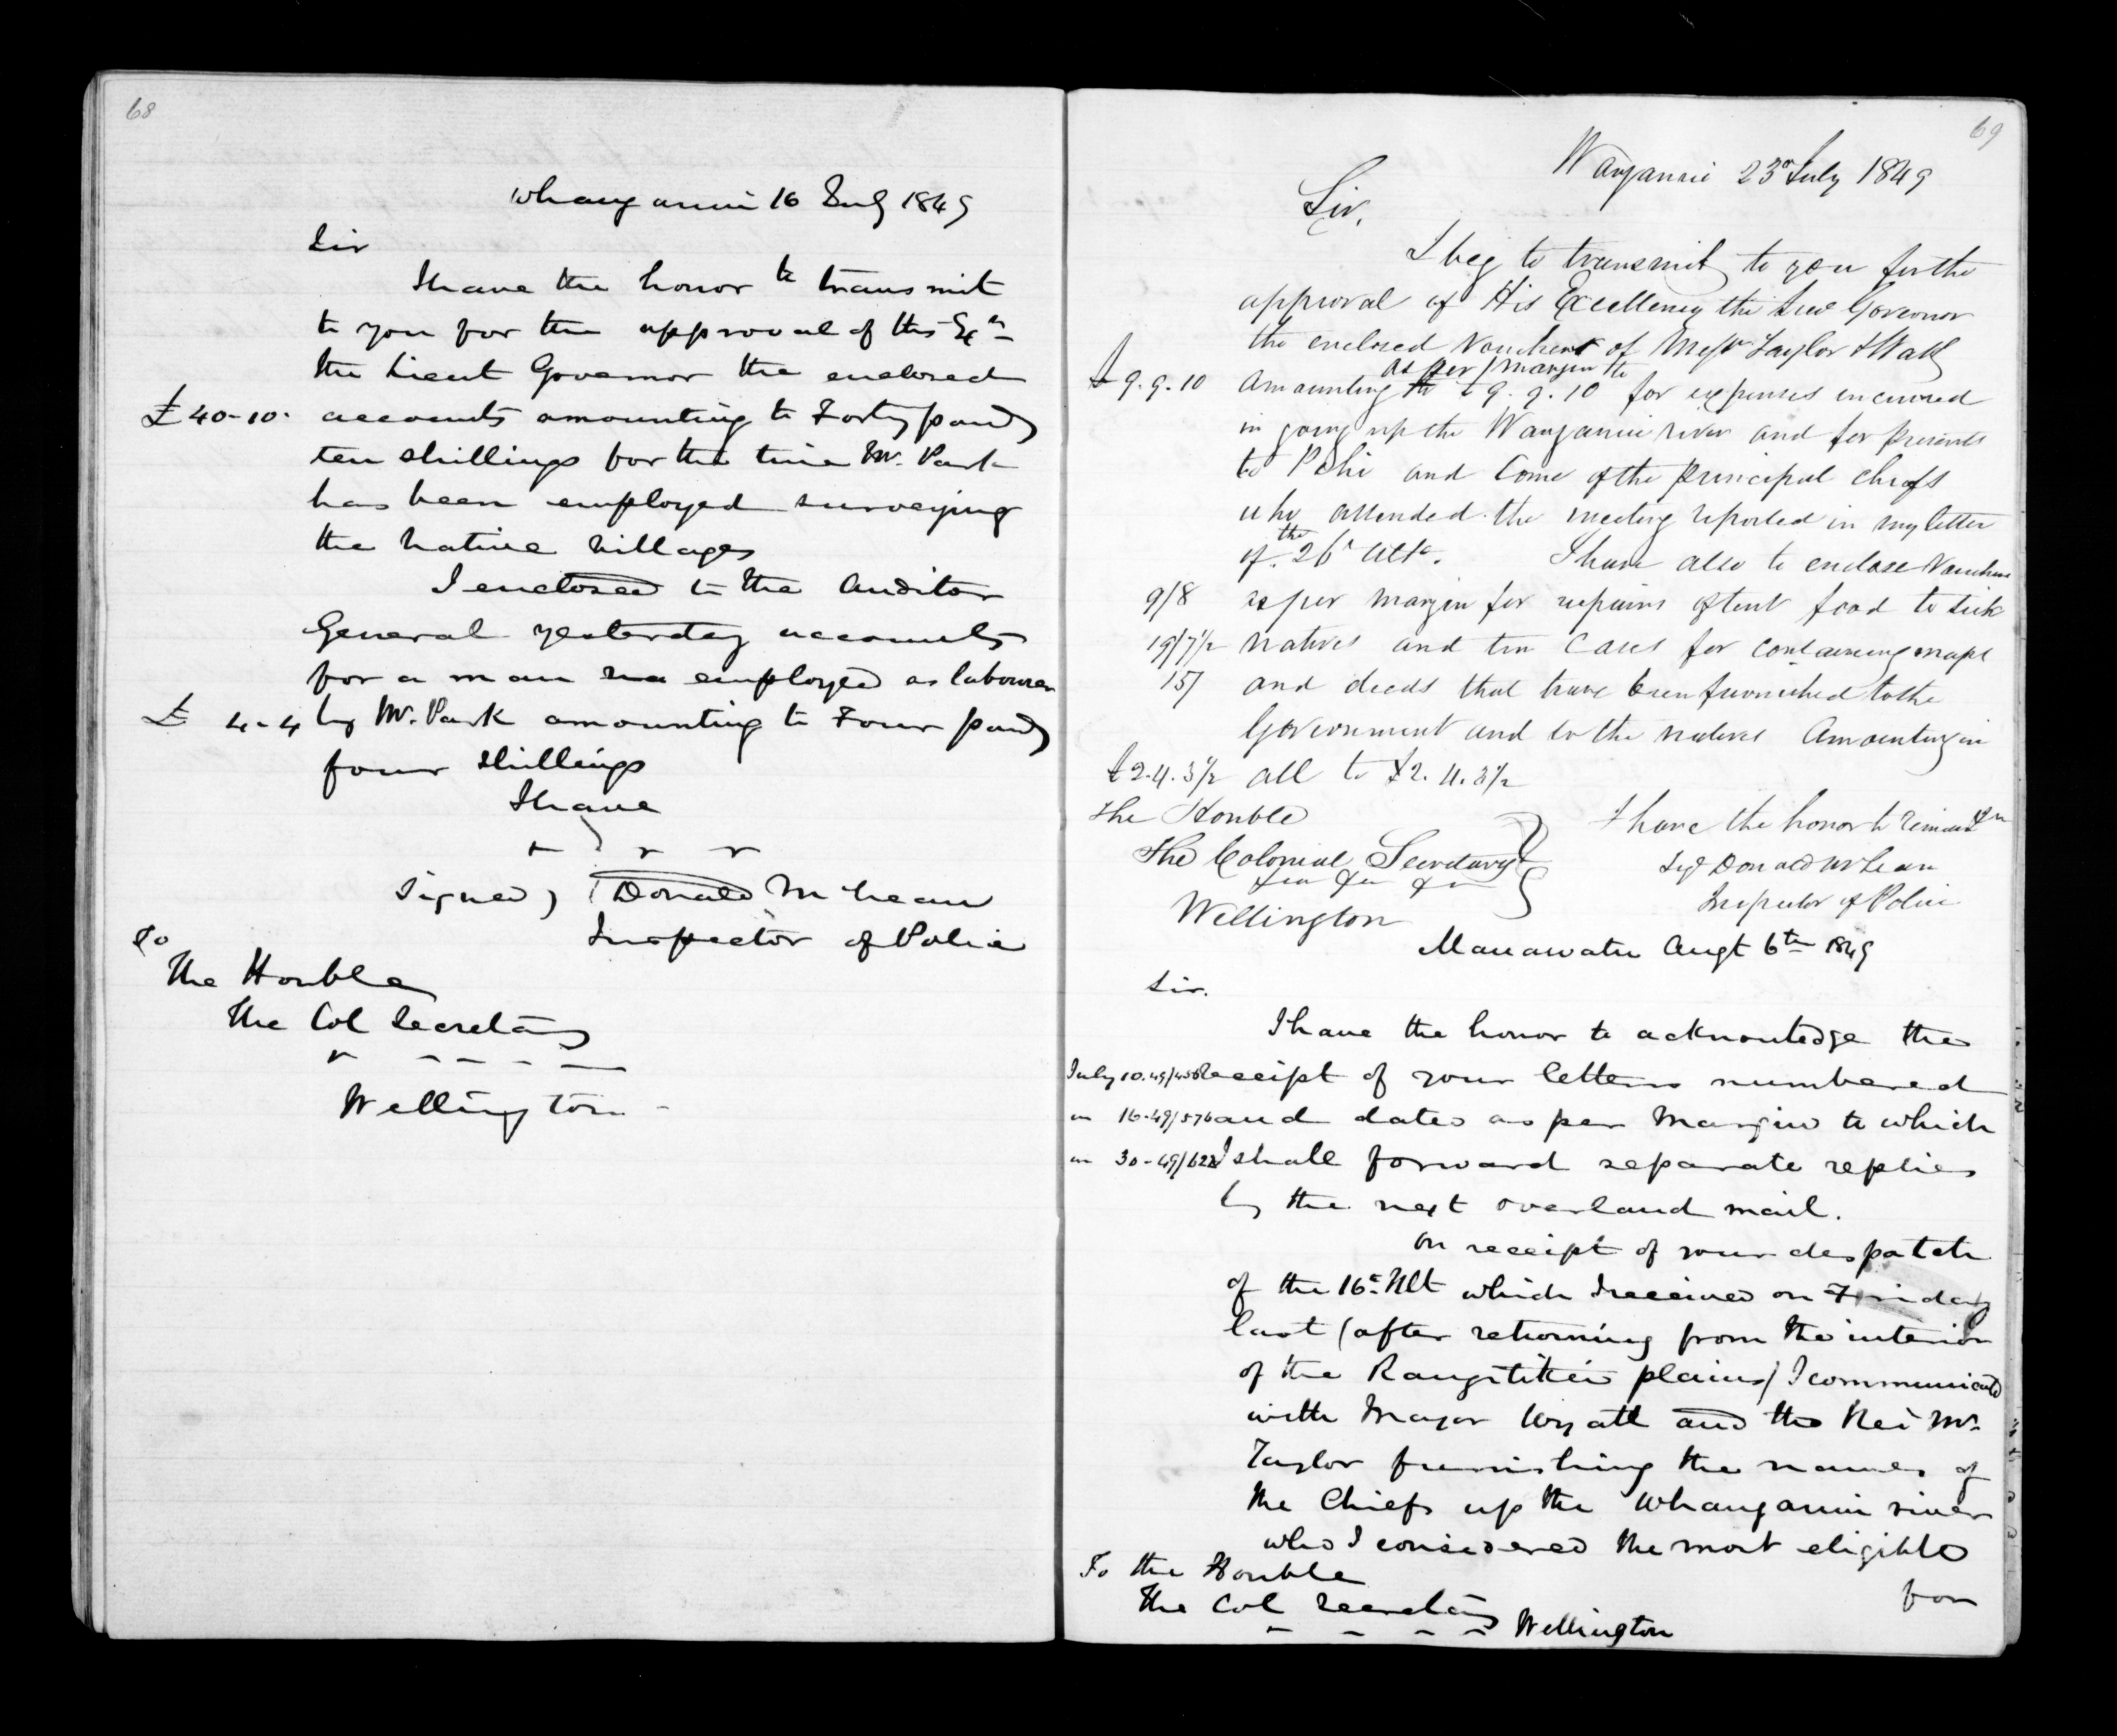 68
Whanganui 16 July 1849
Sir
I have the honor to transmit
to you for the approval of His Exy
the Lieut Governor the enclosed
£40-10- accounts amounting to Forty pounds
ten shillings for the time Mr. Park
has been employed surveying
the native villages
I enclosed to the Auditor
General yesterday accounts
for a man employed as labourer
£ 4-4 by Mr. Park amounting to Four pounds
four shillings
I have
Signed) Donald McLean
Inspector of Police
To
The Honble
The Col Secretary
Wellington
69
Wanganui 23d July 1849
Sir,
I beg to transmit to you for the
approval of His Excellency the Lieut Governor
the enclosed Vouchers of Messrs Taylor &
as per margin
£9.9.10 amounting to £9.9.10 for expenses incurred
in going up the Wanganui river and for presents
to Pehi and some of the principal chiefs
who attended the meeting reported in my letter
of the 26th Ulto. I have also to enclose Vouchers
9/8 as per margin for repairs of tent food to sick
19/7½ natives and tin cases for containing maps
15/ and deeds that have been furnished to the
Government and to the natives Amounting in
£2.4.3½ all to £2.4.3½
The Honble
The Colonial Secretary
&c &c &c
Wellington
I have the honor to remain &c
Sigd Donald McLean
Inspector of Police
Manawatu Augt 6th 1849
Sir.
I have the honor to acknowledge the
July 10.49/ receipt of your letters numbered
" 16-49/576 and dates as per Margin to which
" 30-49/ I shall forward separate replies
by the next overland mail.
On receipt of your despatch
of the 16th Ult which I received on Friday
last (after returning from the interior
of the Rangitikei plains) I communicated
with Major Wyatt and the Rev Mr.
Taylor furnishing the names of
the Chiefs up the Whanganui river
who I considered the most eligible
for
To the Honble
The Col Secretary
Wellington